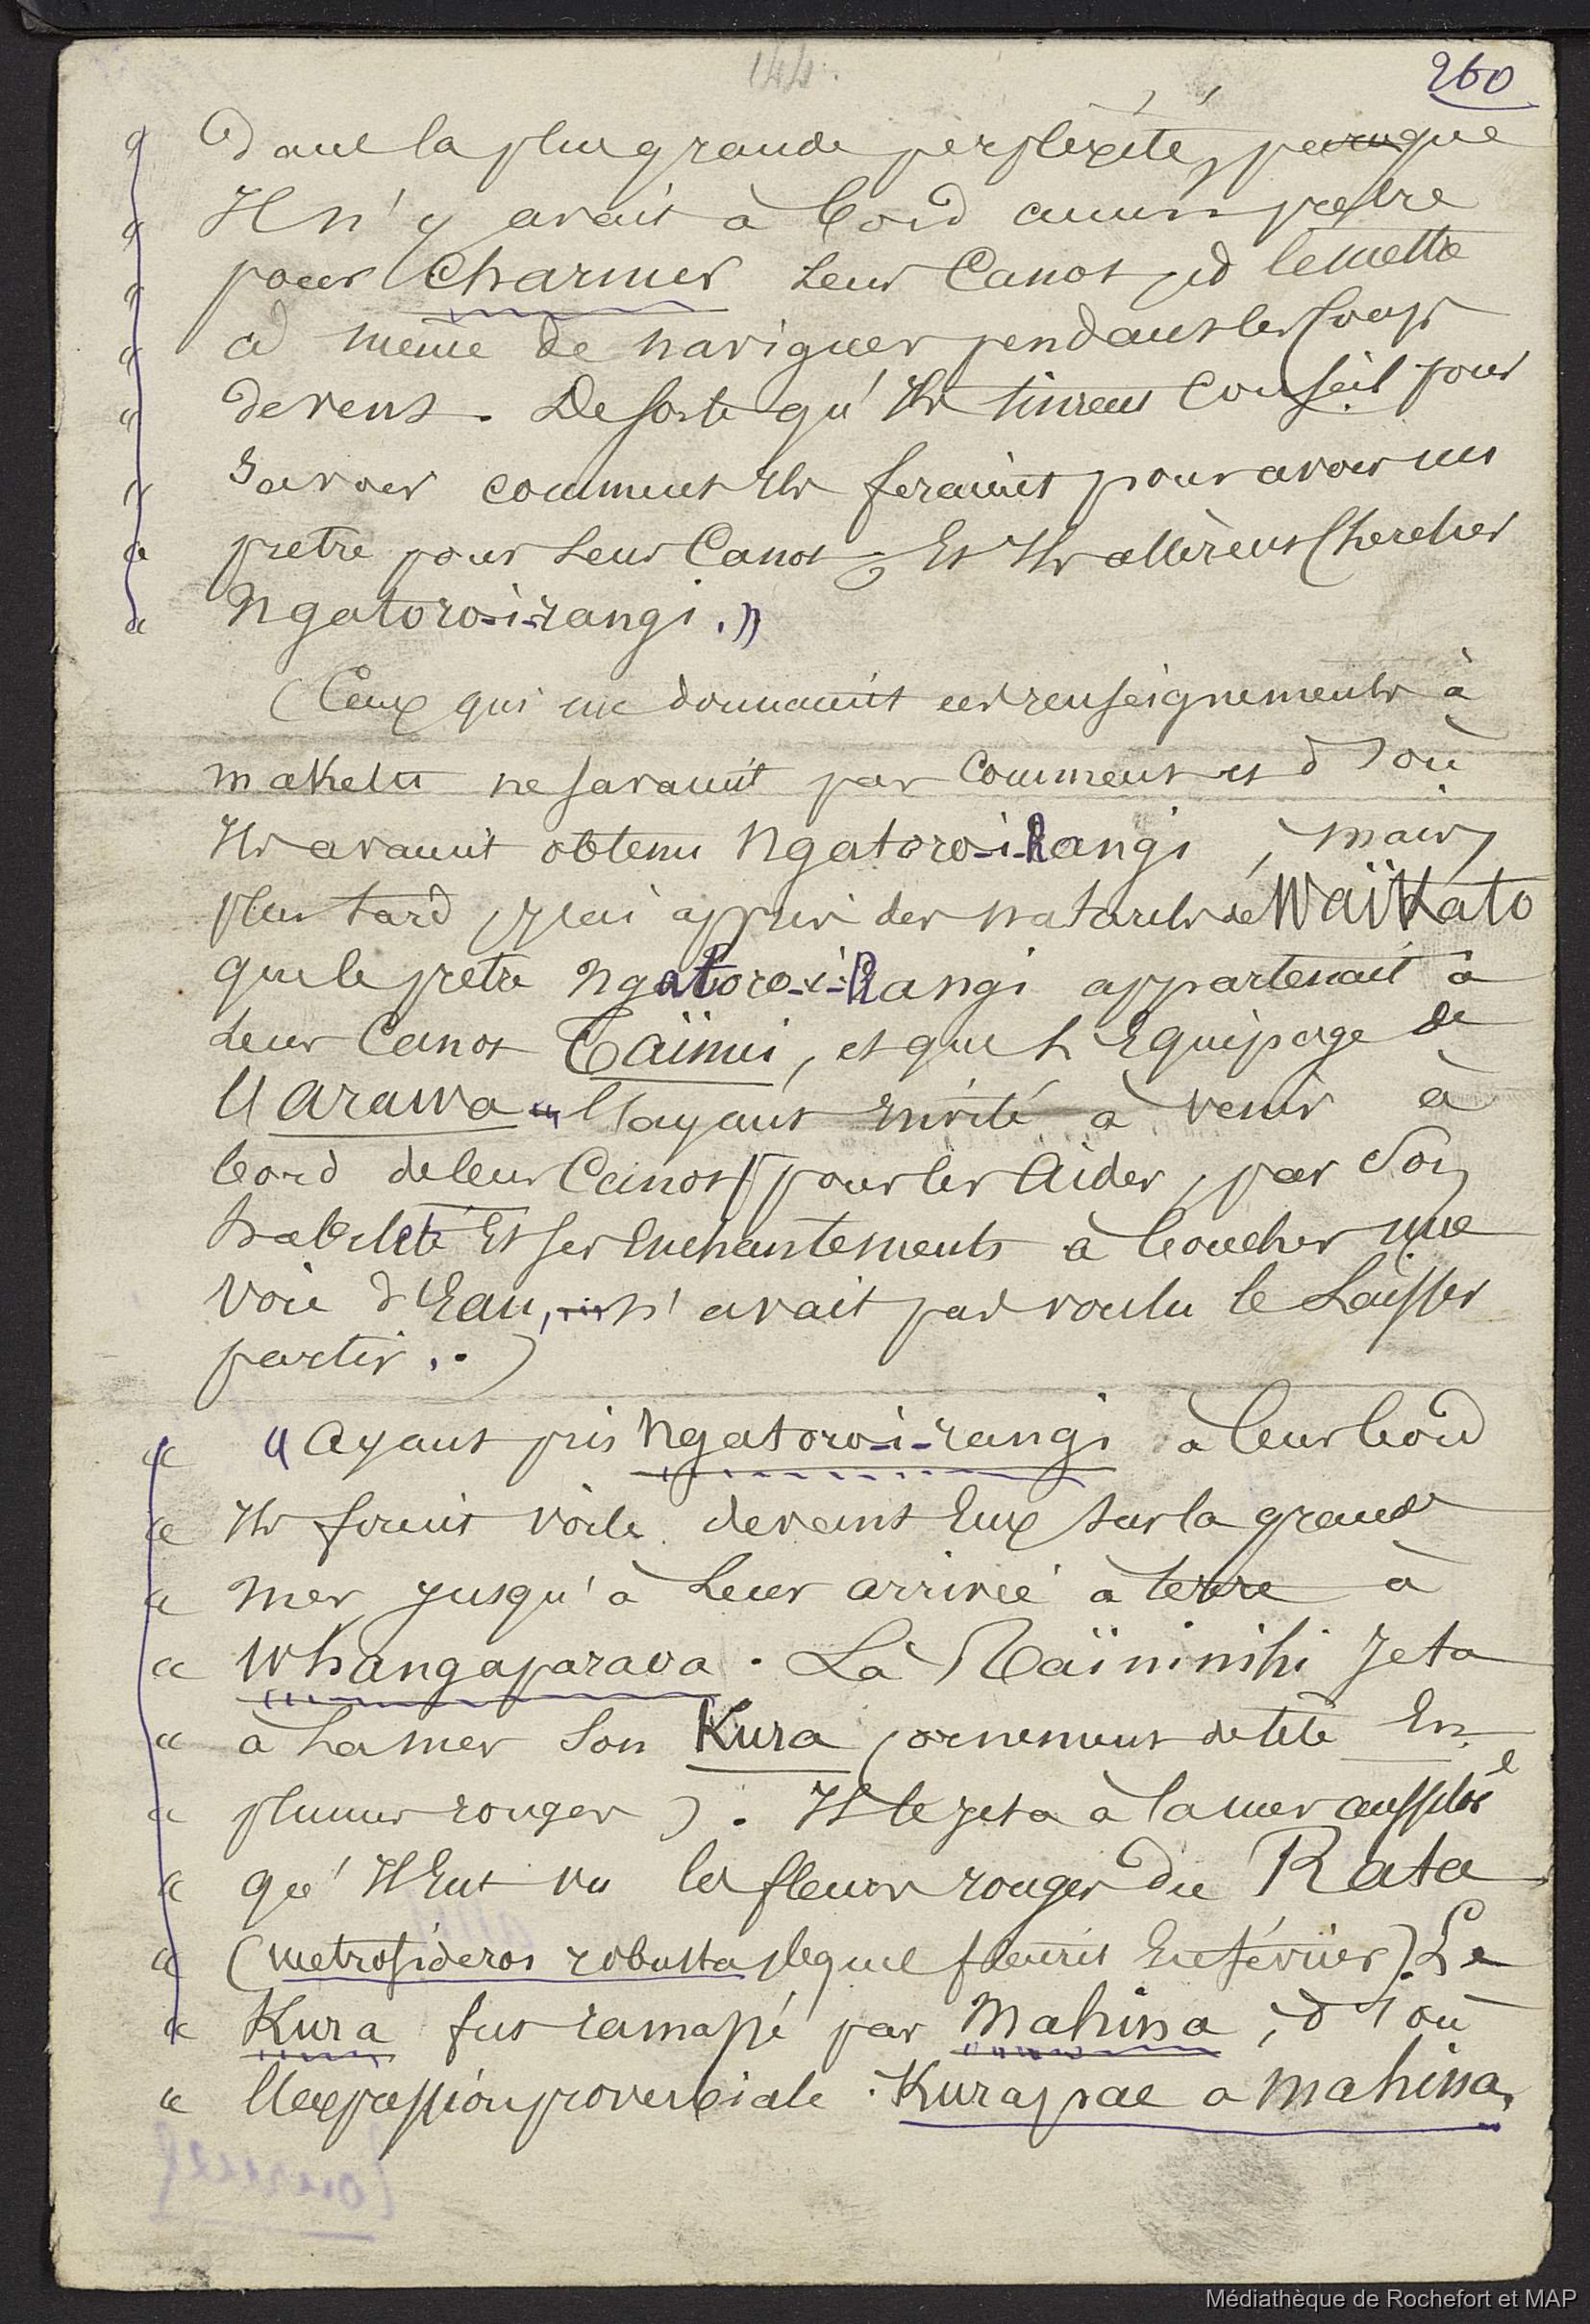 144.
260
« Dans la plus grande perplexité, parceque
« Il n'y avait à bord aucun prêtre
« pour charmer leur Canot, et le mettre
« à même de naviguer pendant les coups
« de vent. De sorte qu'Ils tinrent Conseil pour
« Savoir comment Ils feraient pour avoir un
« prêtre pour leur Canot ; Et Ils allèrent Chercher
« Ngatoro-i-rangi. »
(Ceux qui me donnaient ces renseignements à
maketu ne savaient pas Comment et d'où
Ils avaient obtenu Ngatoro-i-Rangi, mais,
plus tard, j'ai appris des naturels de WaïKato
que le prêtre Ngatoro-i-Rangi appartenait à
leur Canot Taïnui, et que l'Equipage de
l'Arawa l'ayant Invité à venir à
bord de leur Canot pour les Aider, par Son
habileté Et ses Enchantements à boucher une
Voie d'Eau, n'avait pas voulu le Laisser
partir..)
« « Ayant pris Ngatoro-i-rangi à leur bord
« Ils firent voile devant Eux sur la grande
« Mer, jusqu'à leur arrivée à terre à
« Whangaparaoa. Là Taïninihi Jeta
« à la mer Son Kura (ornement de tête En
« plumes rouges). Il le jeta à la mer aussitôt
« qu'Il Eut vu les fleurs rouges du Rata
« (metrosideros robusta, lequel fleurit En février). Le
« Kura fut ramassé par Mahina, d'où
« l'expression proverbiale : Kura pae a mahina.
Médiathèque de Rochefort et MAP